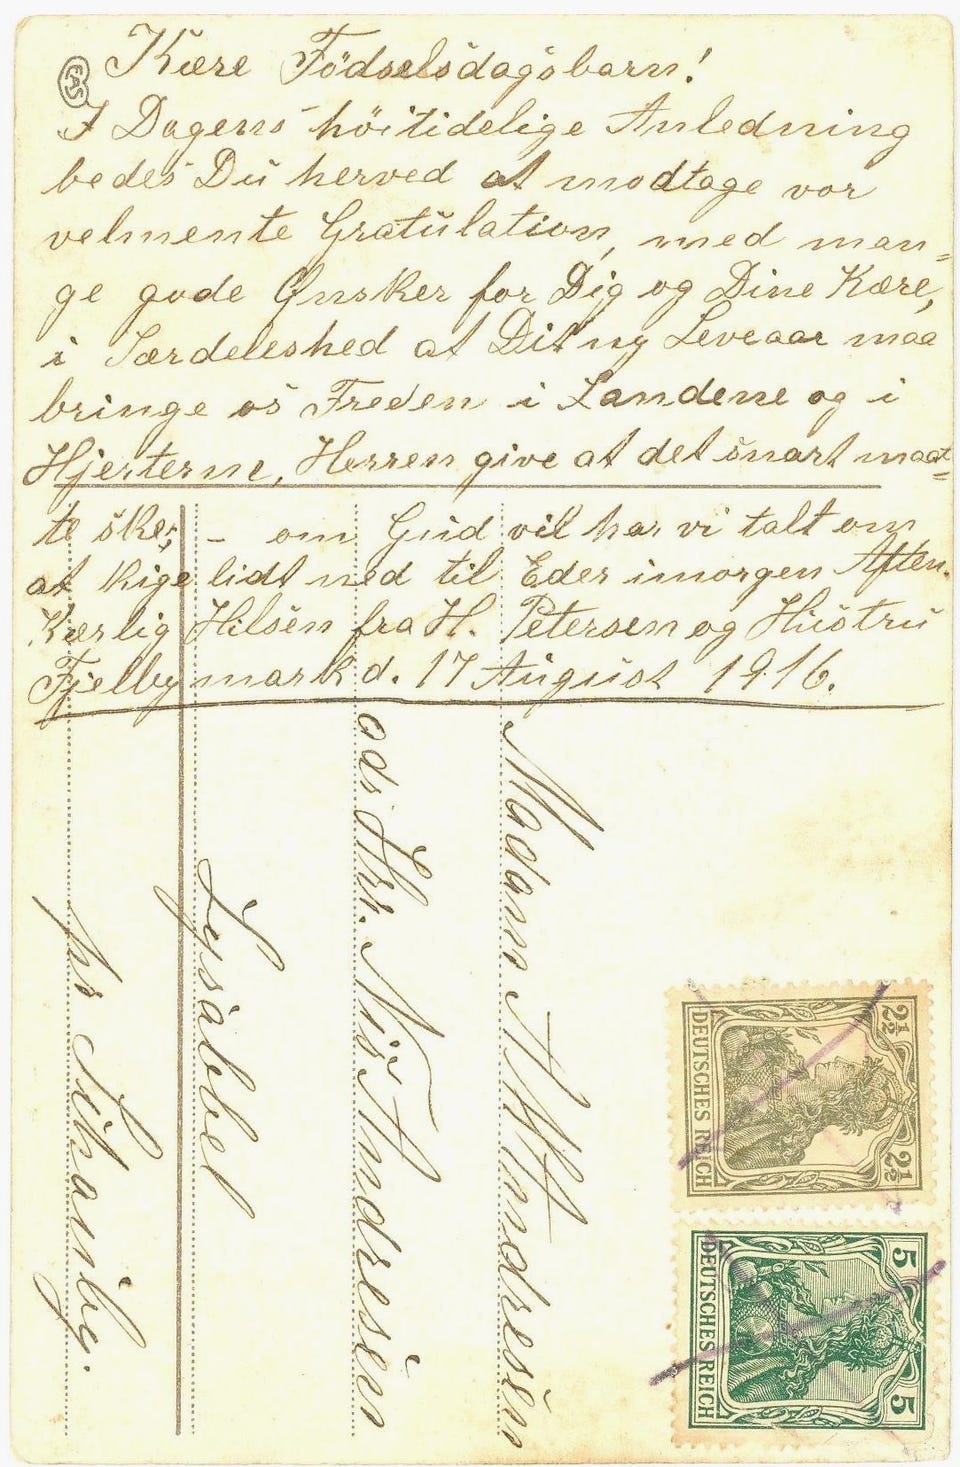 Kære Födselsdagsbarn!
I Dagens höitidelige Anledning
bedes Du herved at modtage vor
velmente Gratulation, med man=
ge gode Ønsker for Dig og Dine Kære,
i Særdeleshed at Dit ny Leveaar maa
bringe os Freden i Landene og i
Hjerterne, Herren give at det snart maat=
te ske; - om Gud vil har vi talt om
at kige lidt ned til Eder imorgen Aften.
Kærlig Hilsen fra H. Petersen og Hustru
Fjelby mark d. 17 August 1916.
Madam Andresen
adr. Hrr. Nis Andresen
Lysabbel
pr
CAS
DEUTSCHES REICH
2½ 2½
DEUTSCHES REICH
5 5